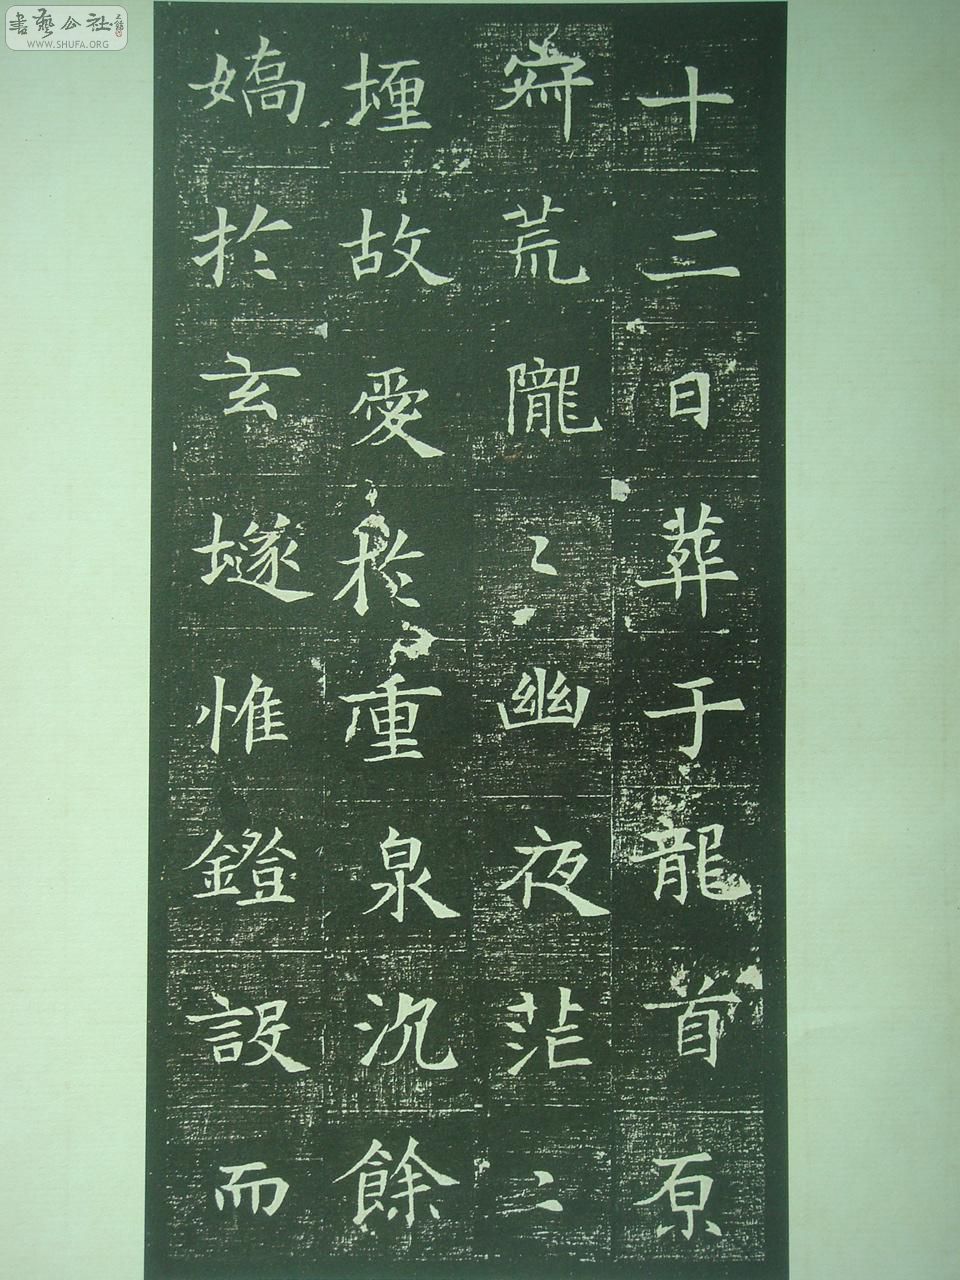 十二日葬于龍首原
齊荒隴〻幽夜茫〻
堙故愛於重泉沉餘
嬌於玄燧惟鐙設而
書藝公社
WWW.SHUFA.ORG